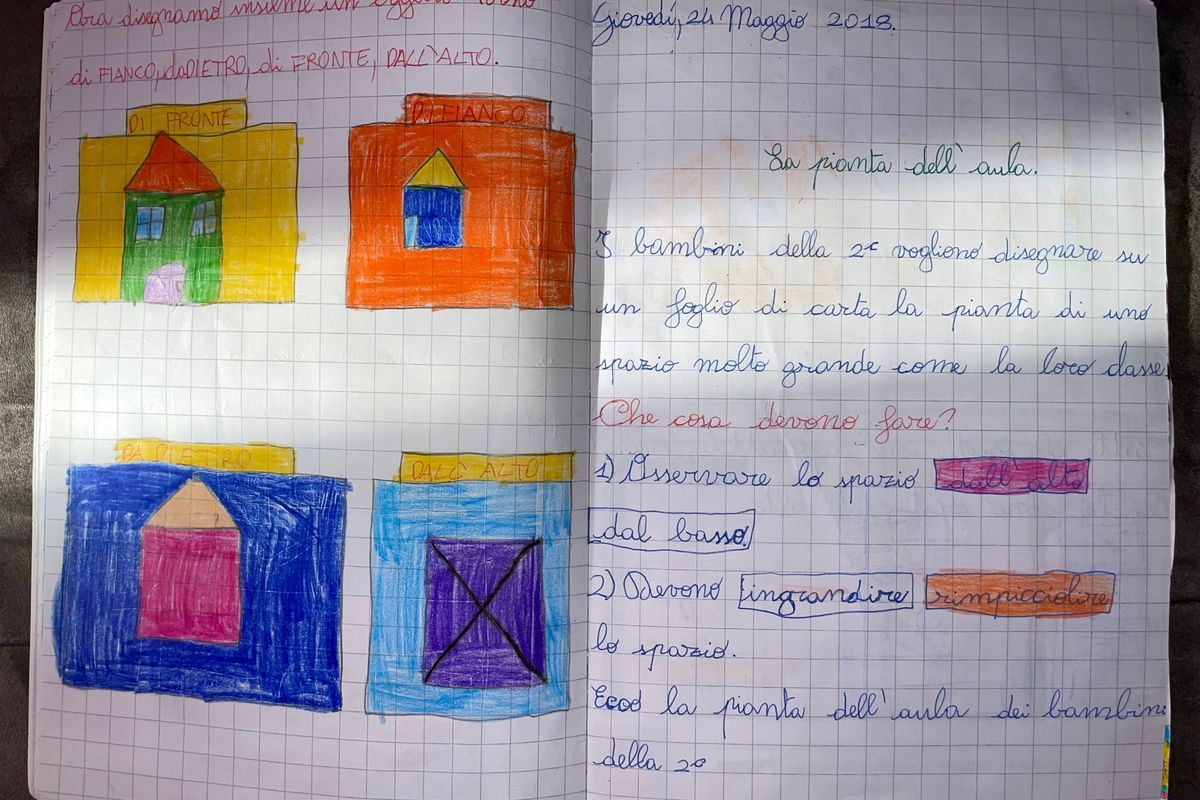 Ora disegnamo insieme un oggetto
di FIANCO, da DIETRO, di FRONTE, DALL'ALTO.
DI FRONTE
DI FIANCO
DA DIETRO
DALL'ALTO
Giovedì, 24 Maggio 2018.
La pianta dell'aula.
I bambini della 2ª vogliono disegnare su
un foglio di carta la pianta di uno
spazio molto grande come la loro classe.
Che cosa devono fare?
1) Osservare lo spazio dall'alto
dal basso.
2) Devono ingrandire rimpicciolire
lo spazio.
Ecco la pianta dell'aula dei bambini
della 2ª